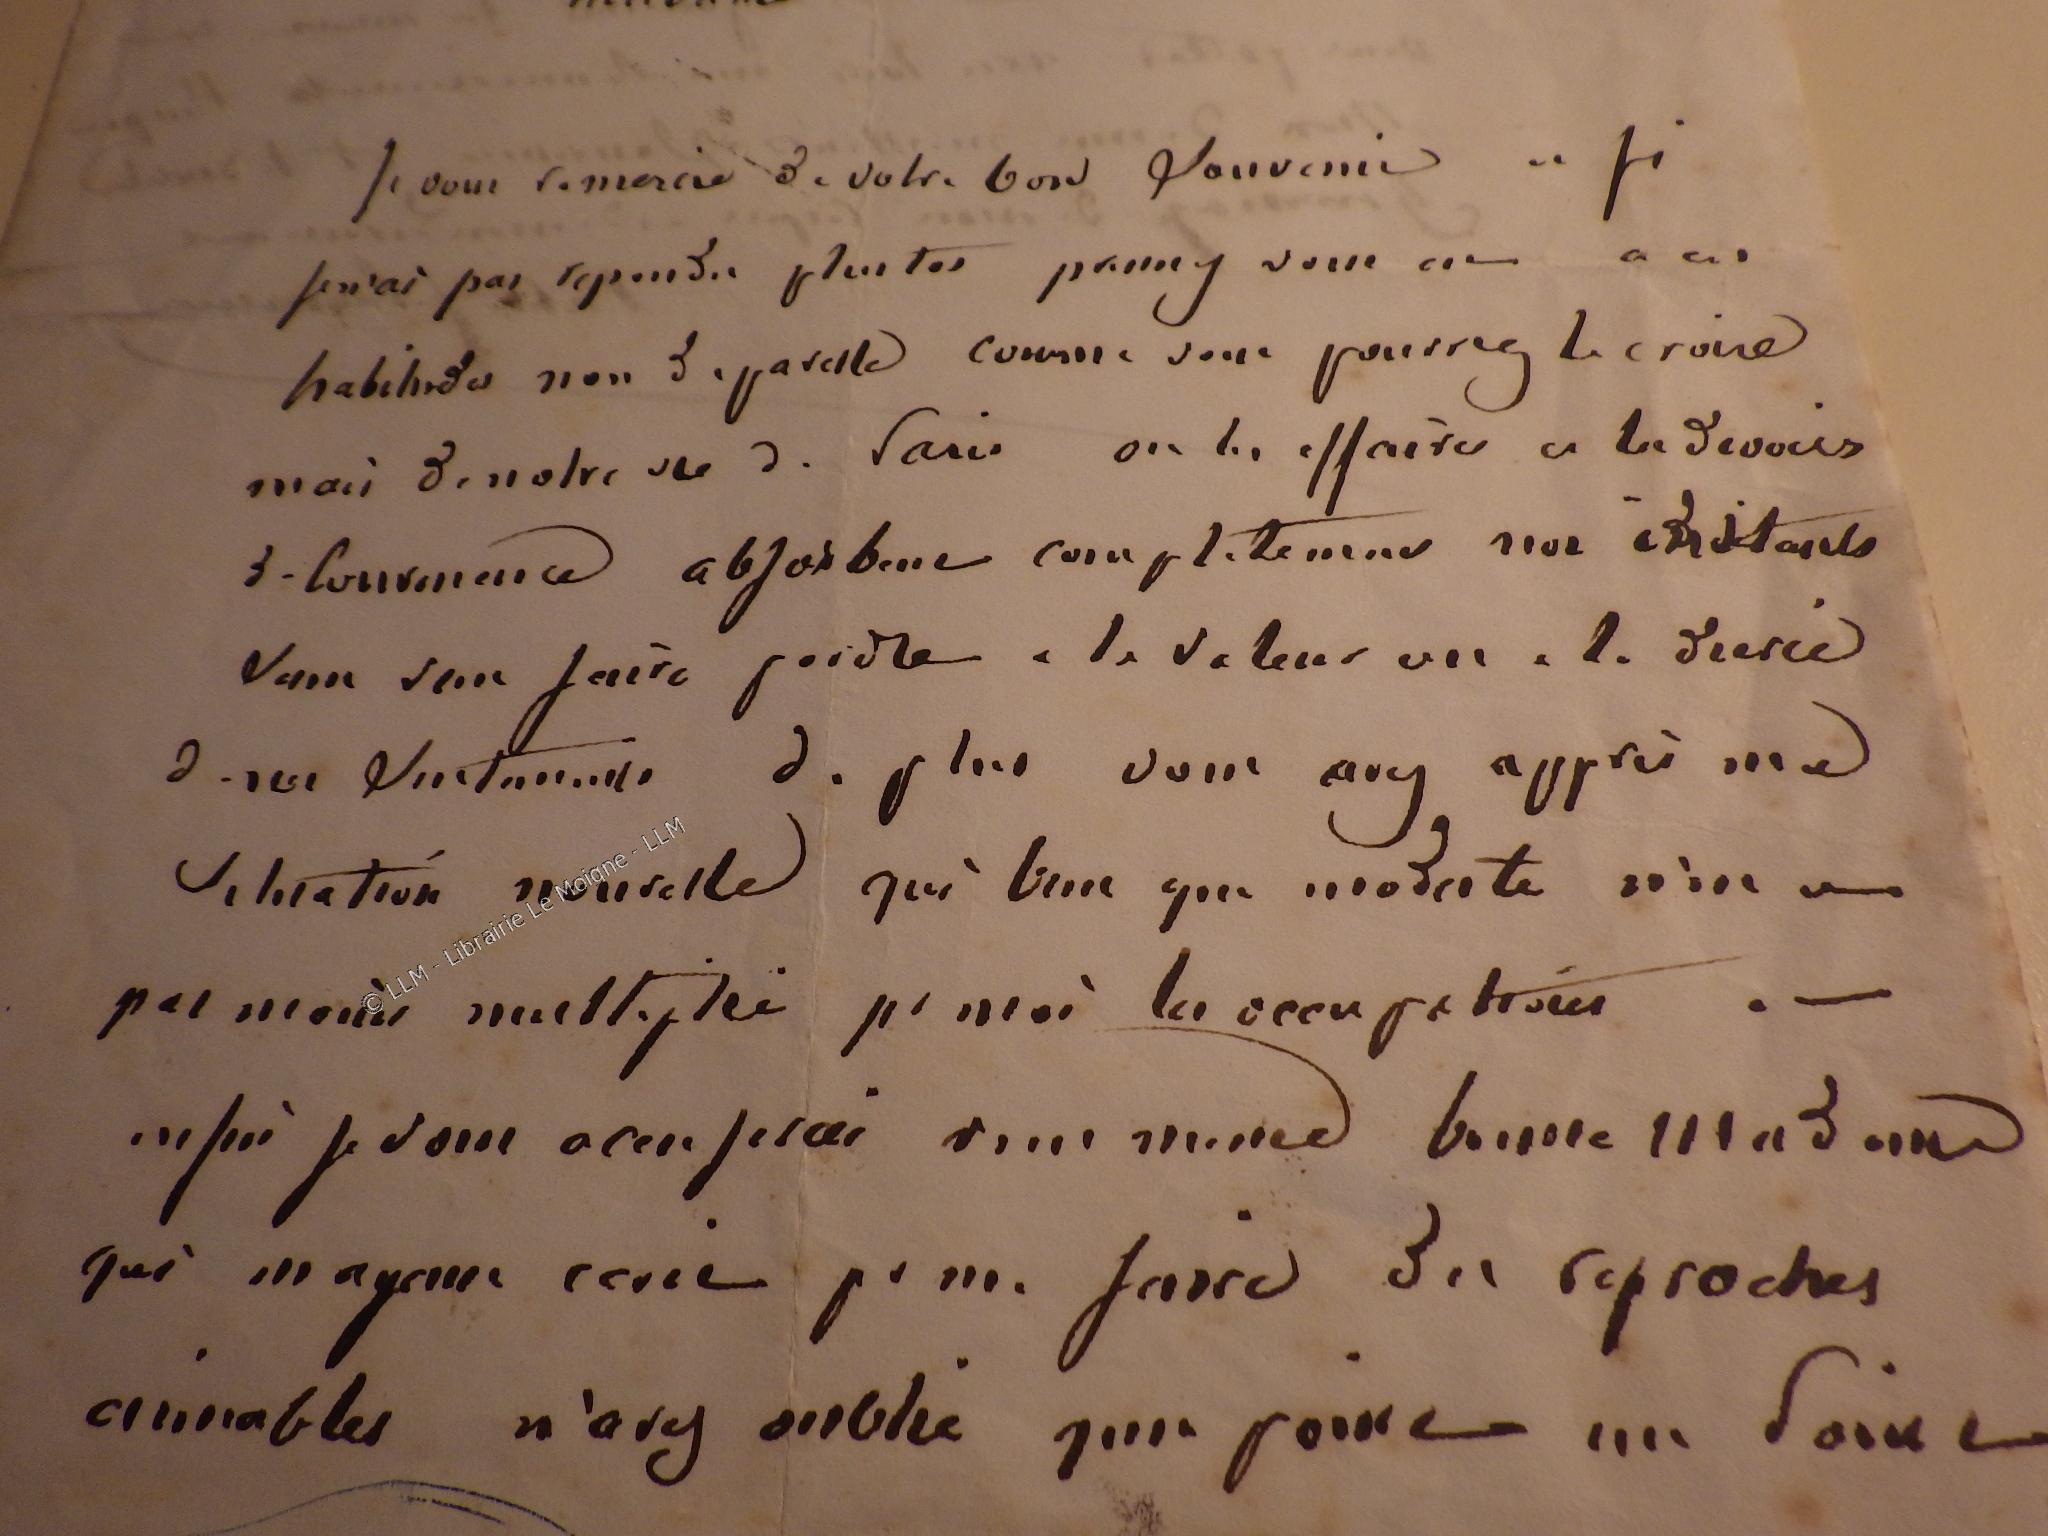 Je vous remercie de votre bon Souvenir et si
je n'ai pas repondu plutos prenez vous en a ces
habitudes non de paresse comme vous pourriez le croire
mais de notre vie de Paris ou les affaires et les devoirs
de Convenance absorbent completement nos instants
sans rien faire perdre a la valeur ou a la durée
de nos Sentiments de plus vous avez appris ma
Situation nouvelle qui bien que modeste n'en a
pas moins multiplié pr moi les occupations et
enfin je vous accuserai vous meme bonne Madame
qui m'ayant ecrit pr me faire des reproches
aimables n'avez oublié qu'un point un Point
© LLM - Librairie Le Moigne - LLM